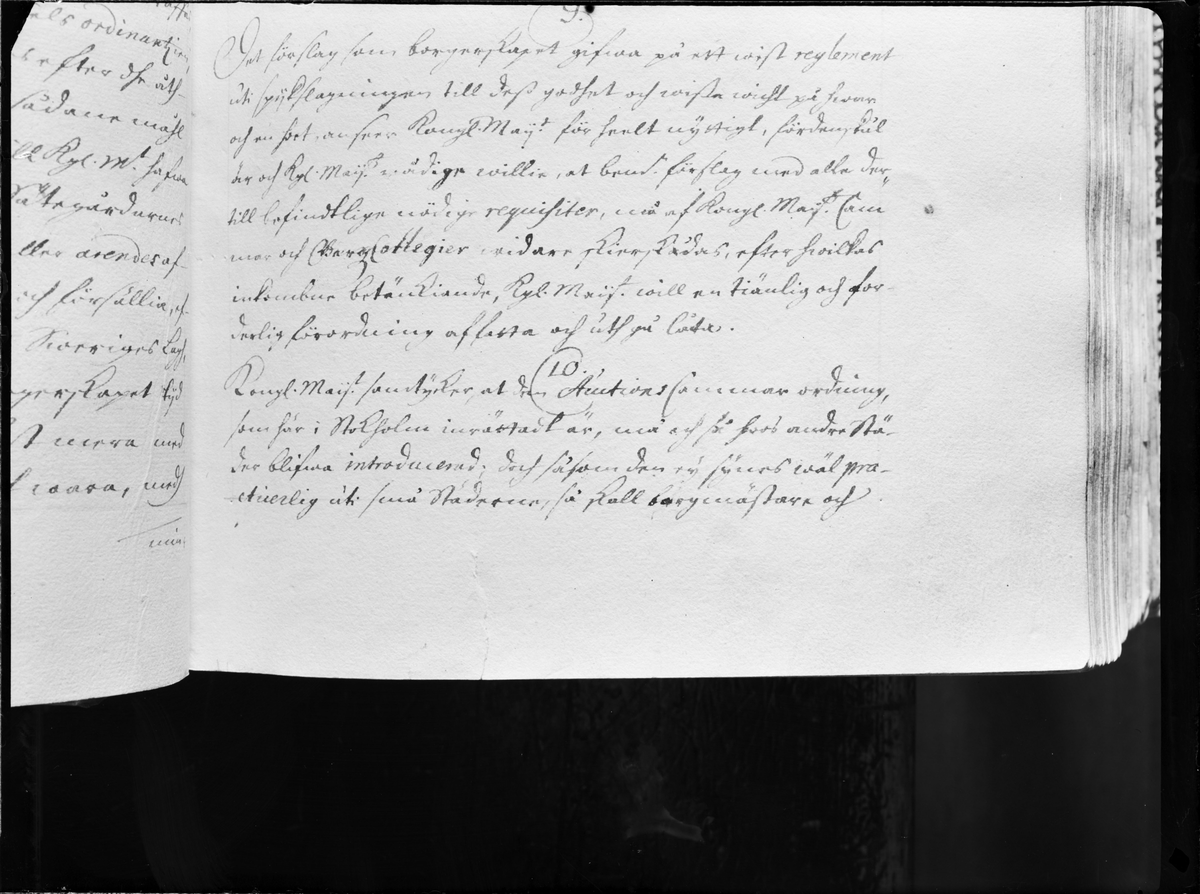 els ordinantzien
efter dhe uth-
sådane måhl
Kgl. Mt. hafwa
Sätegårdarnes
ller ärendes af-
och försällia, ef-
Sweriges Lagh,
gerskapet tÿd
st mera med
waara, med
min
9.
Det förslag som borgerskapet gifwa på ett wist reglement
uti spijkslagningen till dess godhet och wissa wicht på hwar
och en sort, ansees Kongl. Maijt för heelt nyttigt, fördenskul
är och Kgl. Maijt nådige willie, at bemt förslag med alle der„
till befindtlige nödige requisiter, må af Kongl. Maijt Cam
mar och Berg Collegier widare skierskådas, efter hwilkas
inkombne betänkiande, Kgl. Maijt will en tiänlig och for-
derlig förordning affatta och uth gå låta.
10.
Kongl. Maijt samtycker, at den Auctions Cammar ordning,
som här i Stokholm inrättadt är, må och så hoos andre Stä-
der blifwa introducerad; doch såsom den eij synes wäl pra-
cticerlig uti små Städerne, så skall borgmästare och